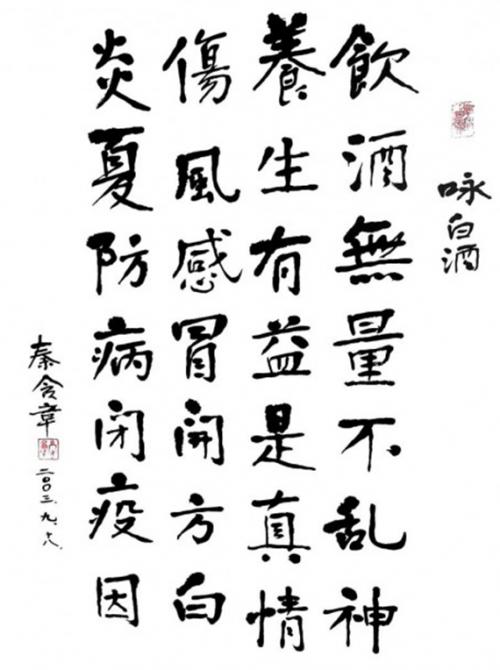 咏白酒
飲酒無量不乱神
養生有益是真情
傷風感冒開方白
炎夏防病闭疫因
秦含章
二〇〇三.九.